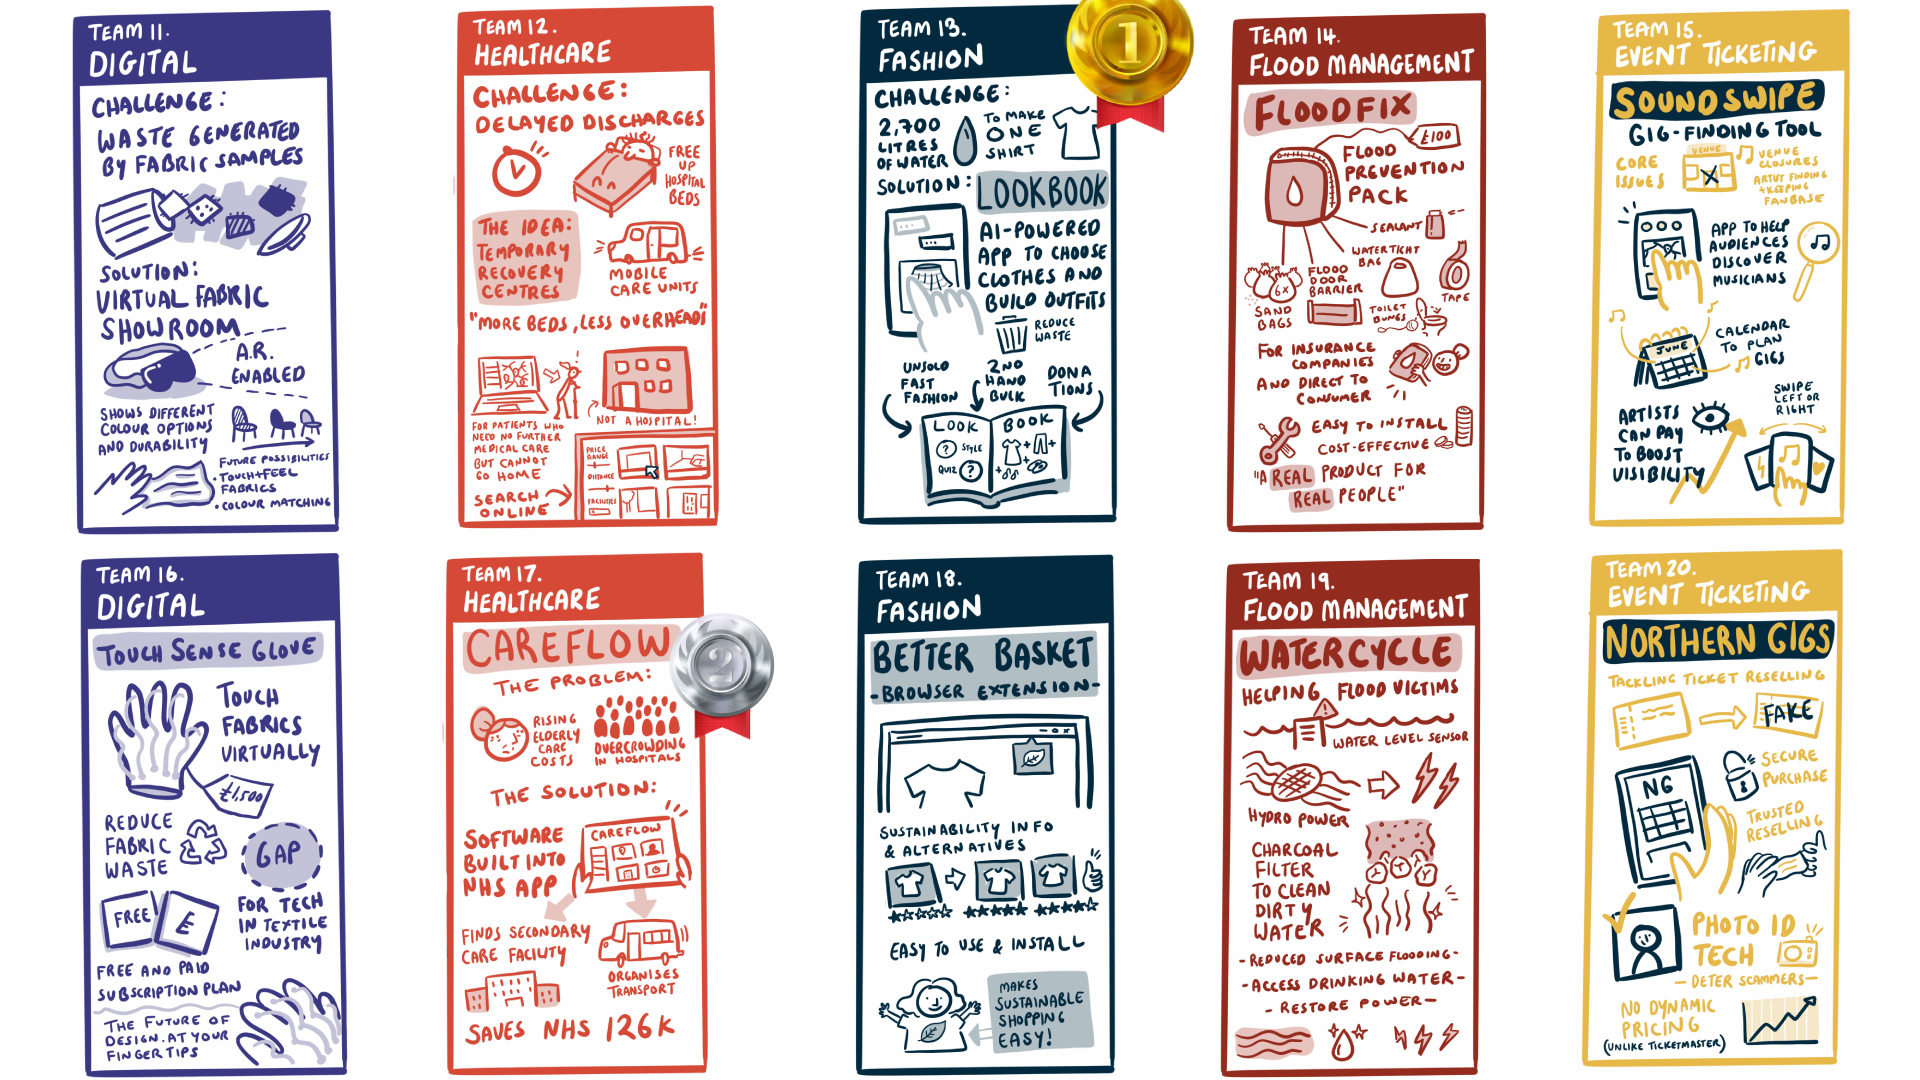 TEAM 11.
DIGITAL
CHALLENGE:
WASTE GENERATED
BY FABRIC SAMPLES
SOLUTION:
VIRTUAL FABRIC
SHOWROOM
A.R.
ENABLED
SHOWS DIFFERENT
COLOUR OPTIONS
AND DURABILITY
FUTURE POSSIBILITIES
• TOUCH+FEEL
FABRICS
• COLOUR MATCHING
TEAM 12.
HEALTHCARE
CHALLENGE:
DELAYED DISCHARGES
FREE
UP
HOSPITAL
BEDS
THE IDEA:
TEMPORARY
RECOVERY
CENTRES
MOBILE
CARE UNITS
"MORE BEDS, LESS OVERHEADS"
NOT A HOSPITAL!
FOR PATIENTS WHO
NEED NO FURTHER
MEDICAL CARE
BUT CANNOT
GO HOME
SEARCH
ONLINE
PRICE
RANGE
DISTANCE
FACILITIES
TEAM 13.
FASHION
1
CHALLENGE:
2,700
LITRES
OF WATER
TO MAKE
ONE
SHIRT
SOLUTION:
LOOKBOOK
AI-POWERED
APP TO CHOOSE
CLOTHES AND
BUILD OUTFITS
REDUCE
WASTE
UNSOLD
FAST
FASHION
2ND
HAND
BULK
DONA
TIONS
LOOK
BOOK
? STYLE
QUIZ ?
TEAM 14.
FLOOD MANAGEMENT
FLOODFIX
£100
FLOOD
PREVENTION
PACK
SEALANT
WATERTIGHT
BAG
FLOOD
DOOR
BARRIER
6x
SAND
BAGS
TOILET
BUNGS
TAPE
FOR INSURANCE
COMPANIES
AND DIRECT TO
CONSUMER
EASY TO INSTALL
COST-EFFECTIVE
"A REAL PRODUCT FOR
REAL PEOPLE"
TEAM 15.
EVENT TICKETING
SOUNDSWIPE
GIG-FINDING TOOL
CORE
ISSUES
VENUE
VENUE
CLOSURES
ARTIST FINDING
+KEEPING
FANBASE
APP TO HELP
AUDIENCES
DISCOVER
MUSICIANS
JUNE
CALENDAR
TO PLAN
GIGS
ARTISTS
CAN PAY
TO BOOST
VISIBILITY
SWIPE
LEFT OR
RIGHT
TEAM 16.
DIGITAL
TOUCH SENSE GLOVE
TOUCH
FABRICS
VIRTUALLY
£1,500
REDUCE
FABRIC
WASTE
GAP
FOR TECH
IN TEXTILE
INDUSTRY
FREE
£
FREE AND PAID
SUBSCRIPTION PLAN
THE FUTURE OF
DESIGN. AT YOUR
FINGERTIPS
TEAM 17.
HEALTHCARE
CAREFLOW
2
THE PROBLEM:
RISING
ELDERLY
CARE
COSTS
OVERCROWDING
IN HOSPITALS
THE SOLUTION:
SOFTWARE
BUILT INTO
NHS APP
CAREFLOW
FINDS SECONDARY
CARE FACILITY
ORGANISES
TRANSPORT
SAVES NHS 126K
TEAM 18.
FASHION
BETTER BASKET
-BROWSER EXTENSION-
SUSTAINABILITY INFO
& ALTERNATIVES
EASY TO USE & INSTALL
MAKES
SUSTAINABLE
SHOPPING
EASY!
TEAM 19.
FLOOD MANAGEMENT
WATERCYCLE
HELPING FLOOD VICTIMS
WATER LEVEL SENSOR
HYDRO POWER
CHARCOAL
FILTER
TO CLEAN
DIRTY
WATER
-REDUCED SURFACE FLOODING-
-ACCESS DRINKING WATER-
-RESTORE POWER-
TEAM 20.
EVENT TICKETING
NORTHERN GIGS
TACKLING TICKET RESELLING
FAKE
NG
SECURE
PURCHASE
TRUSTED
RESELLING
PHOTO ID
TECH
-DETER SCAMMERS-
NO DYNAMIC
PRICING
(UNLIKE TICKETMASTER)